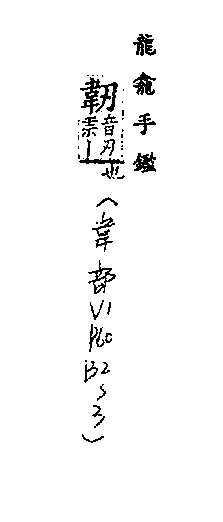 龍龕手鑑
韌音刃柔丨也(韋部V1
P60
B2
S
3)